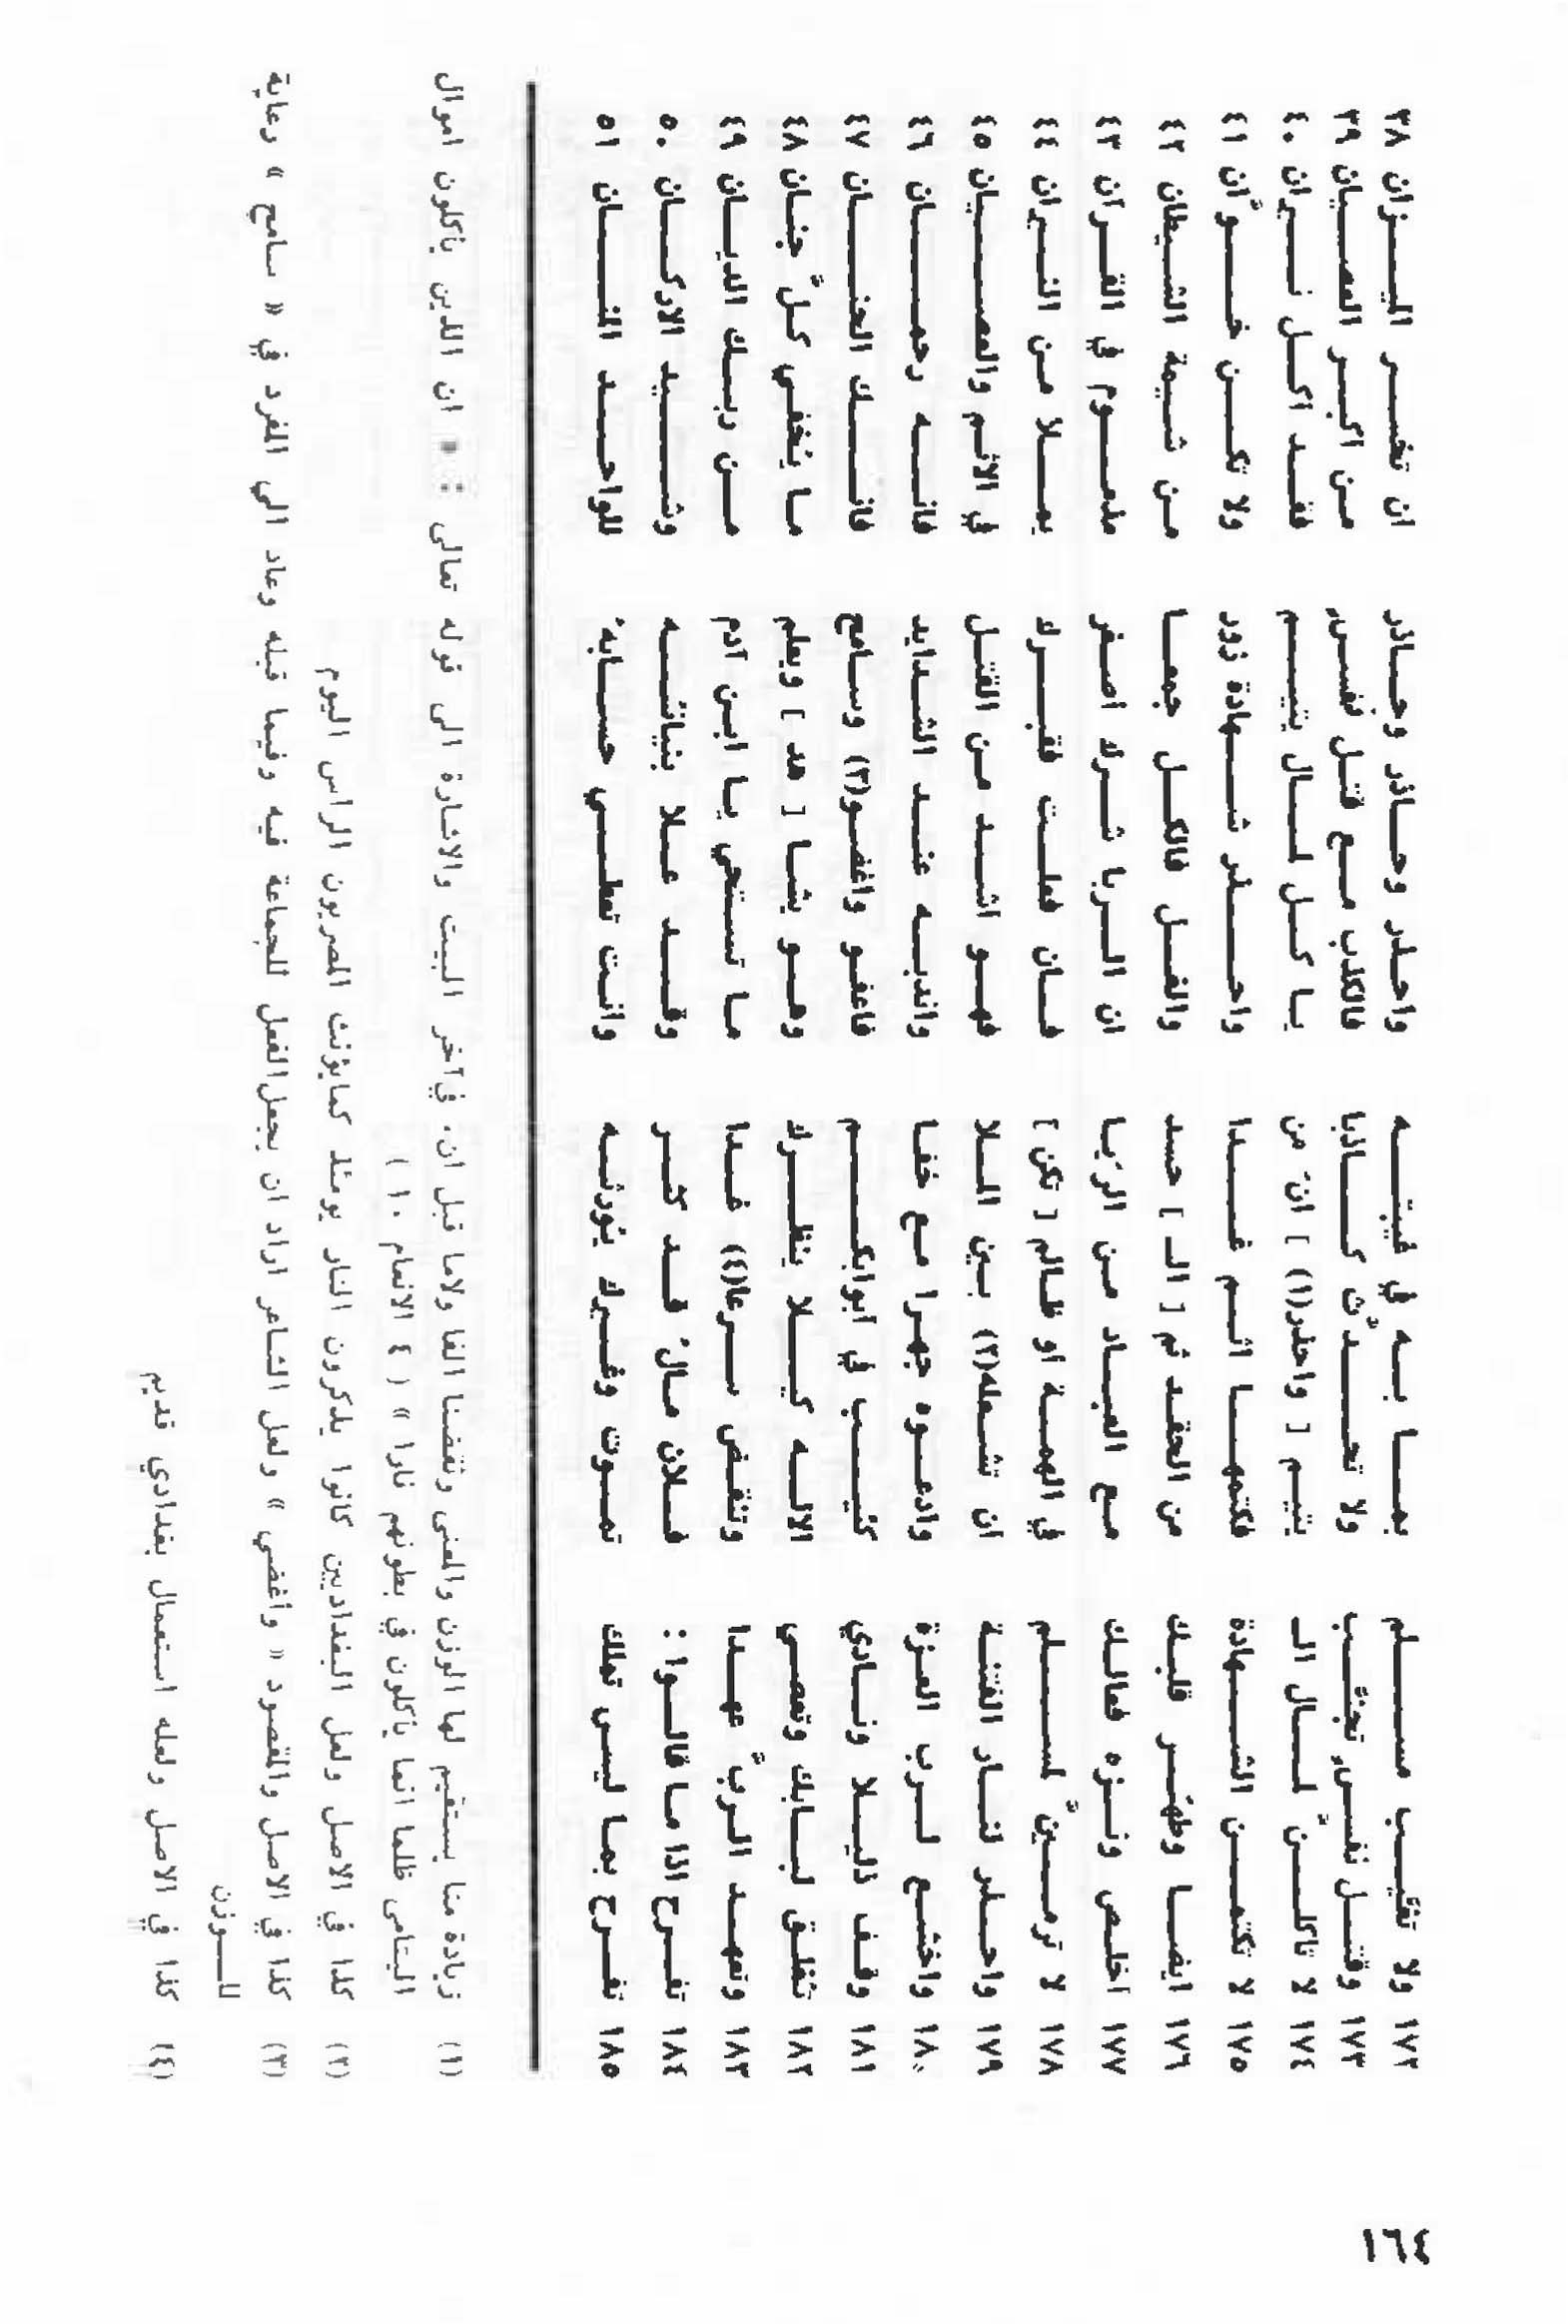 ١٧٢ ولا تغيّب مسلم بما به في غيبته واحذر وحاذر وحاذر ان تخسر الميزان ٣٨
١٧٣ وقتل نفسٍ تجنّب ولا تحدّث كاذبا فالكذب مع قتل نفسٍ من اكبر العصيان ٣٩
١٧٤ لا تأكلنّ لمال الـ يتيم [ واحذر(١) ] انّ من يا كل لمال يتيم فقد اكل نيران ٤٠
١٧٥ لا تكتمن الشهادة فكتمها اثم غدا واحذر شهادة زور ولا تكن خوّان ٤١
١٧٦ ايضا وطهّر قلبك من الحقد ثم [ الـ ] حسد والغل فالكل جمعا من شيمة الشيطان ٤٢
١٧٧ اخلص ونزه فعالك مع العباد من الريا ان الريا شرك أصغر مذموم في القرآن ٤٣
١٧٨ لا ترمينّ لمسلم في الهمة او ظالم [ تكن ] فان فعلت فقبرك يملا من النيران ٤٤
١٧٩ واحذر لنار الفتنة ان تشعله(٢) بين الملا فهو اشد من القتل في الاثم والعصيان ٤٥
١٨٠ واخشع لرب العزة وادعوه جهرا مع خفا واندبه عند الشدايد فانه رحمان ٤٦
١٨١ وقف ذليلا ونادي كئيب في ابوابكم فاعفو واغضو(٣) وسامح فانك الحنان ٤٧
١٨٢ تغلق لبابك وتعصي الاله كيلا ينظرك وهو يشا [ هد ] ويعلم ما يخفي كلّ جنان ٤٨
١٨٣ وتعهد الربّ عهدا وتنقض سرعا(٤) غدا ما تستحي يا ابن آدم من ربك الديان ٤٩
١٨٤ تفرح اذا ما قالوا : فلان مالُ قد كثر وقد علا بنيانه وشيد الاركان ٥٠
١٨٥ تفرح بما ليس تملك تموت وغيرك يورثه وانت تعطي حسابهُ للواحد المنان ٥١
(١) زيادة منا يستقيم لها الوزن والمعنى ونقصنا الفا ولاما قبل ان، في آخر البيت والاشارة الى قوله تعالى : « ان الذين يأكلون اموال
اليتامى ظلما انما يأكلون في بطونهم نارا » ( ٤ الانعام ١٠ )
(٢) كذا في الاصل ولعل البغداديين كانوا يذكرون النار يومئذ كما يؤنث المصريون الراس اليوم
(٣) كذا في الاصل والمقصود « وأغضي » ولعل الشاعر اراد ان يجعل الفعل للجماعة فيه وفيما قبله وعاد الي المفرد في « سامح » رعاية
للوزن
(٤) كذا في الاصل ولعله استعمال بغدادي قديم
١٦٤